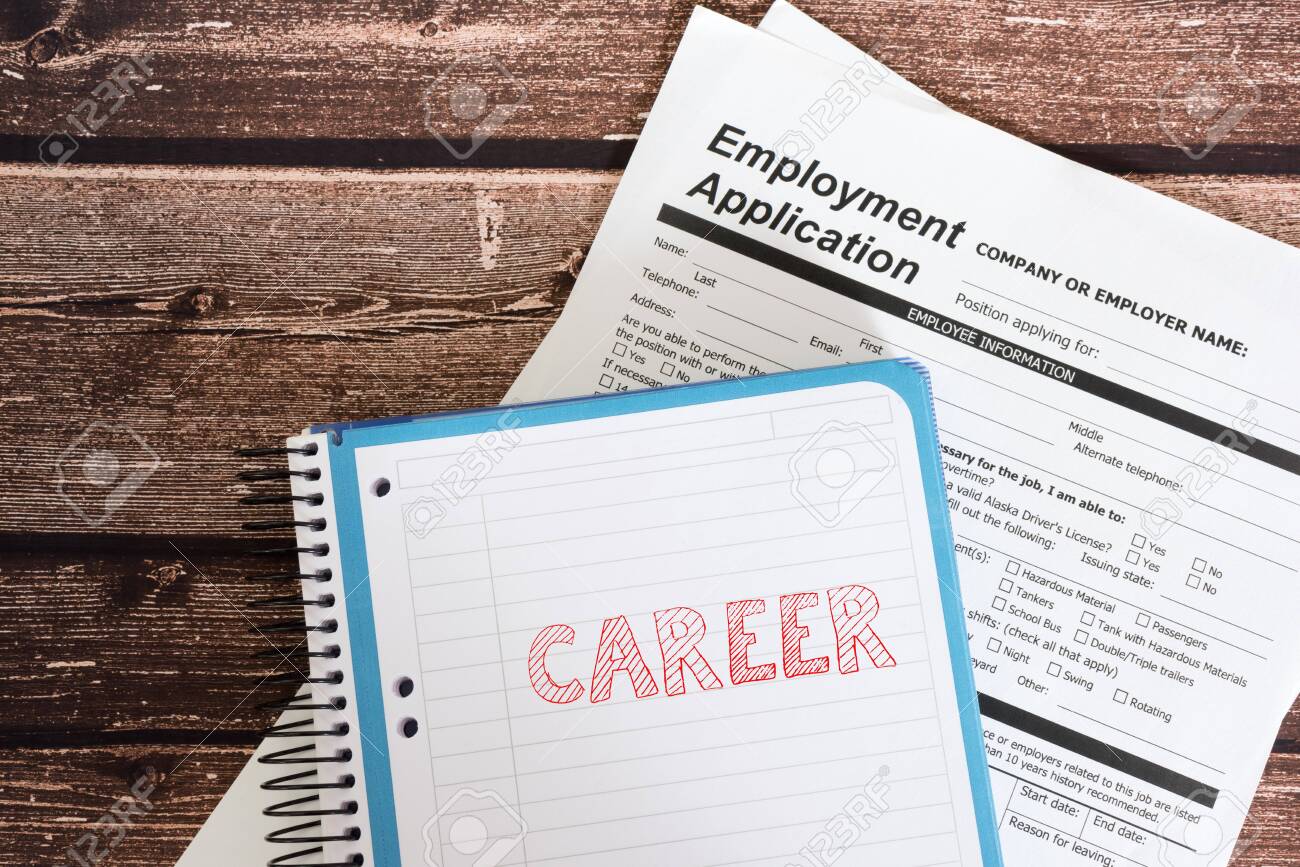 Employment
Application
COMPANY OR EMPLOYER NAME:
Position applying for:
EMPLOYEE INFORMATION
Name:
Last
First
Middle
Telephone:
Email:
Alternate telephone:
Address:
Are you able to perform the
the position with or
Yes
No
If necessary
14
for the job, I am able to:
overtime?
Yes
No
a valid Alaska Driver's License?
Yes
No
fill out the following:
Issuing state:
Hazardous Material
Passengers
Tankers
Tank with Hazardous Materials
School Bus
Double/Triple trailers
shifts: (check all that apply)
Night
Swing
Rotating
Other:
or employers related to this job are listed
than 10 years history recommended.
Start date:
End date:
Reason for leaving:
CAREER
123RF